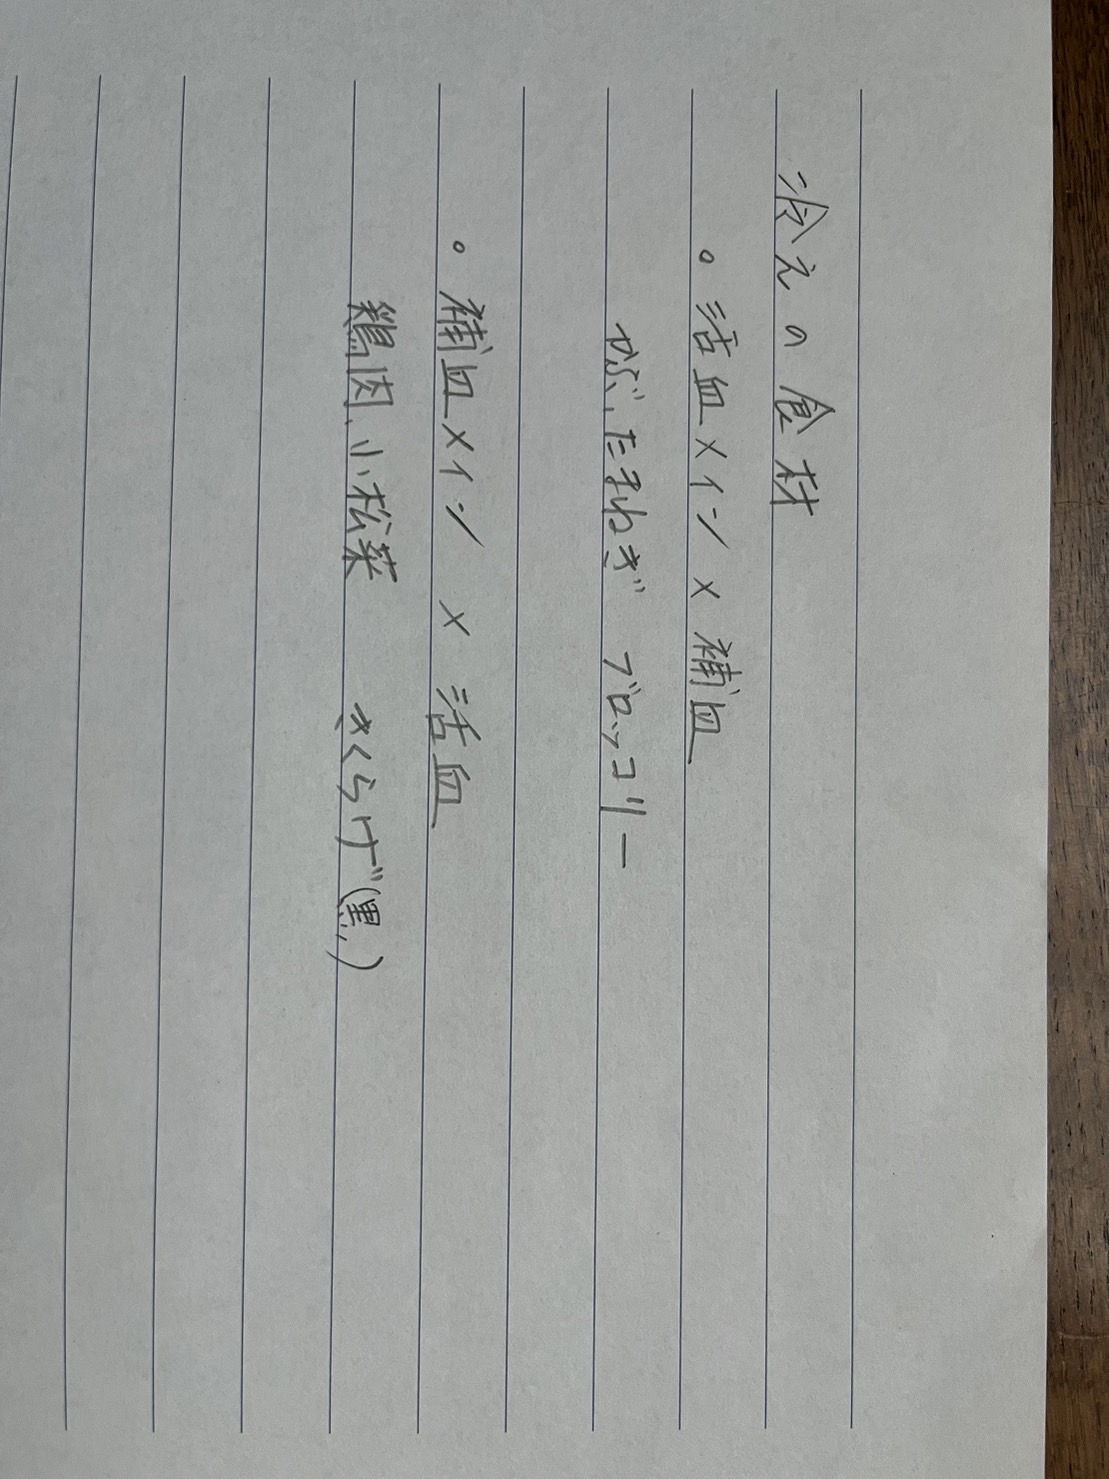 冷えの食材
。活血メイン × 補血
かぶ、たまねぎ ブロッコリー
。補血メイン × 活血
鶏肉、小松菜 きくらげ(黒)